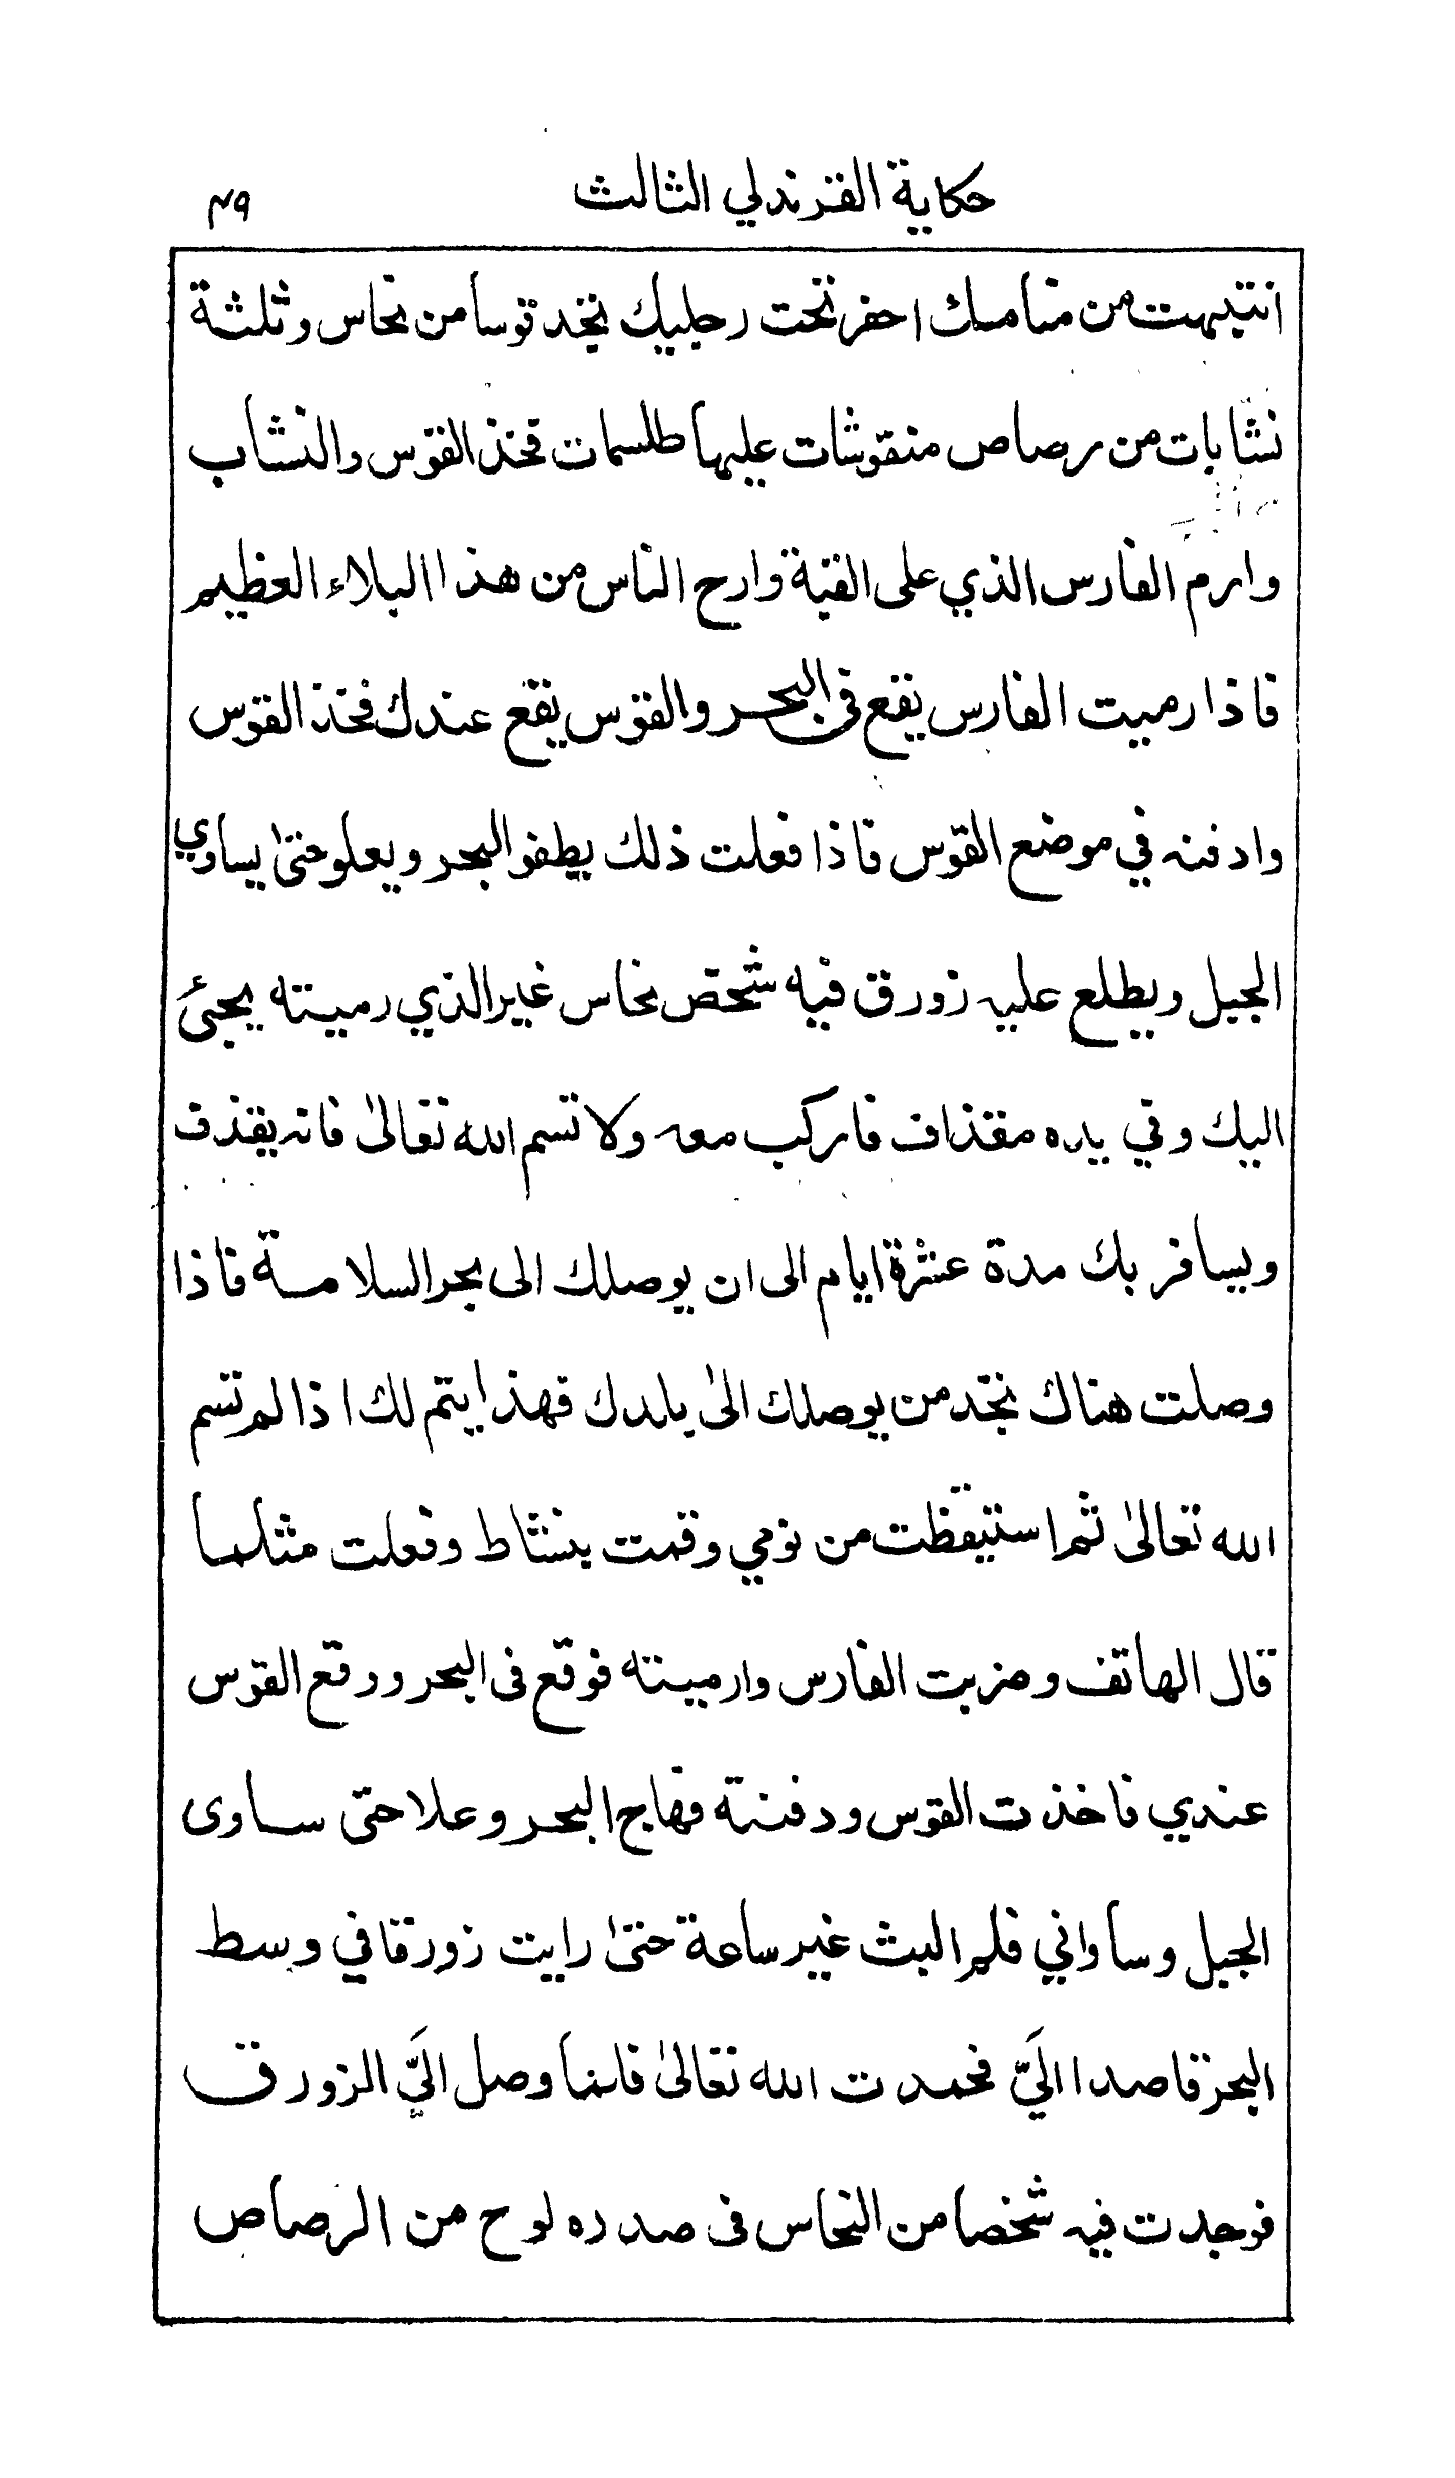 حكاية القرندلي الثالث ٤٩
انتبهت من منامك احفر تحت رجليك تجد قوسا من نحاس وثلثة
نشّابات من رصاص منقوشات عليها طلسمات فخذ القوس والنشاب
وارم الفارس الذي على القبّة وارح الناس من هذا البلاء العظيم
فاذا رميت الفارس يقع في البحر والقوس يقع عندك فخذ القوس
وادفنه في موضع القوس فاذا فعلت ذلك يطفو البحر ويعلو حتىٰ يساوي
الجبل ويطلع عليه زورق فيه شخص نحاس غير الذي رميته يجيئ
اليك وفي يده مقذاف فاركب معه ولا تسم الله تعالىٰ فانه يقذف
ويسافر بك مدة عشرة ايام الى ان يوصلك الى بحر السلامة فاذا
وصلت هناك تجد من يوصلك الىٰ بلدك فهذا يتم لك اذا لم تسم
الله تعالىٰ ثم استيقظت من نومي وقمت بنشاط وفعلت مثلما
قال الهاتف وضربت الفارس وارميته فوقع فى البحر ووقع القوس
عندي فاخذت القوس ودفنته فهاج البحر وعلا حتى ساوى
الجبل وساواني فلم البث غير ساعة حتىٰ رايت زورقا في وسط
البحر قاصدا اليَّ فحمدت الله تعالىٰ فلما وصل اليَّ الزورق
فوجدت فيه شخصا من النحاس فى صدره لوح من الرصاص